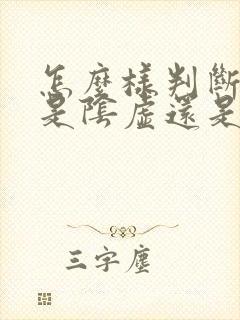 怎麼樣判斷
是陰虛還是
三字塵